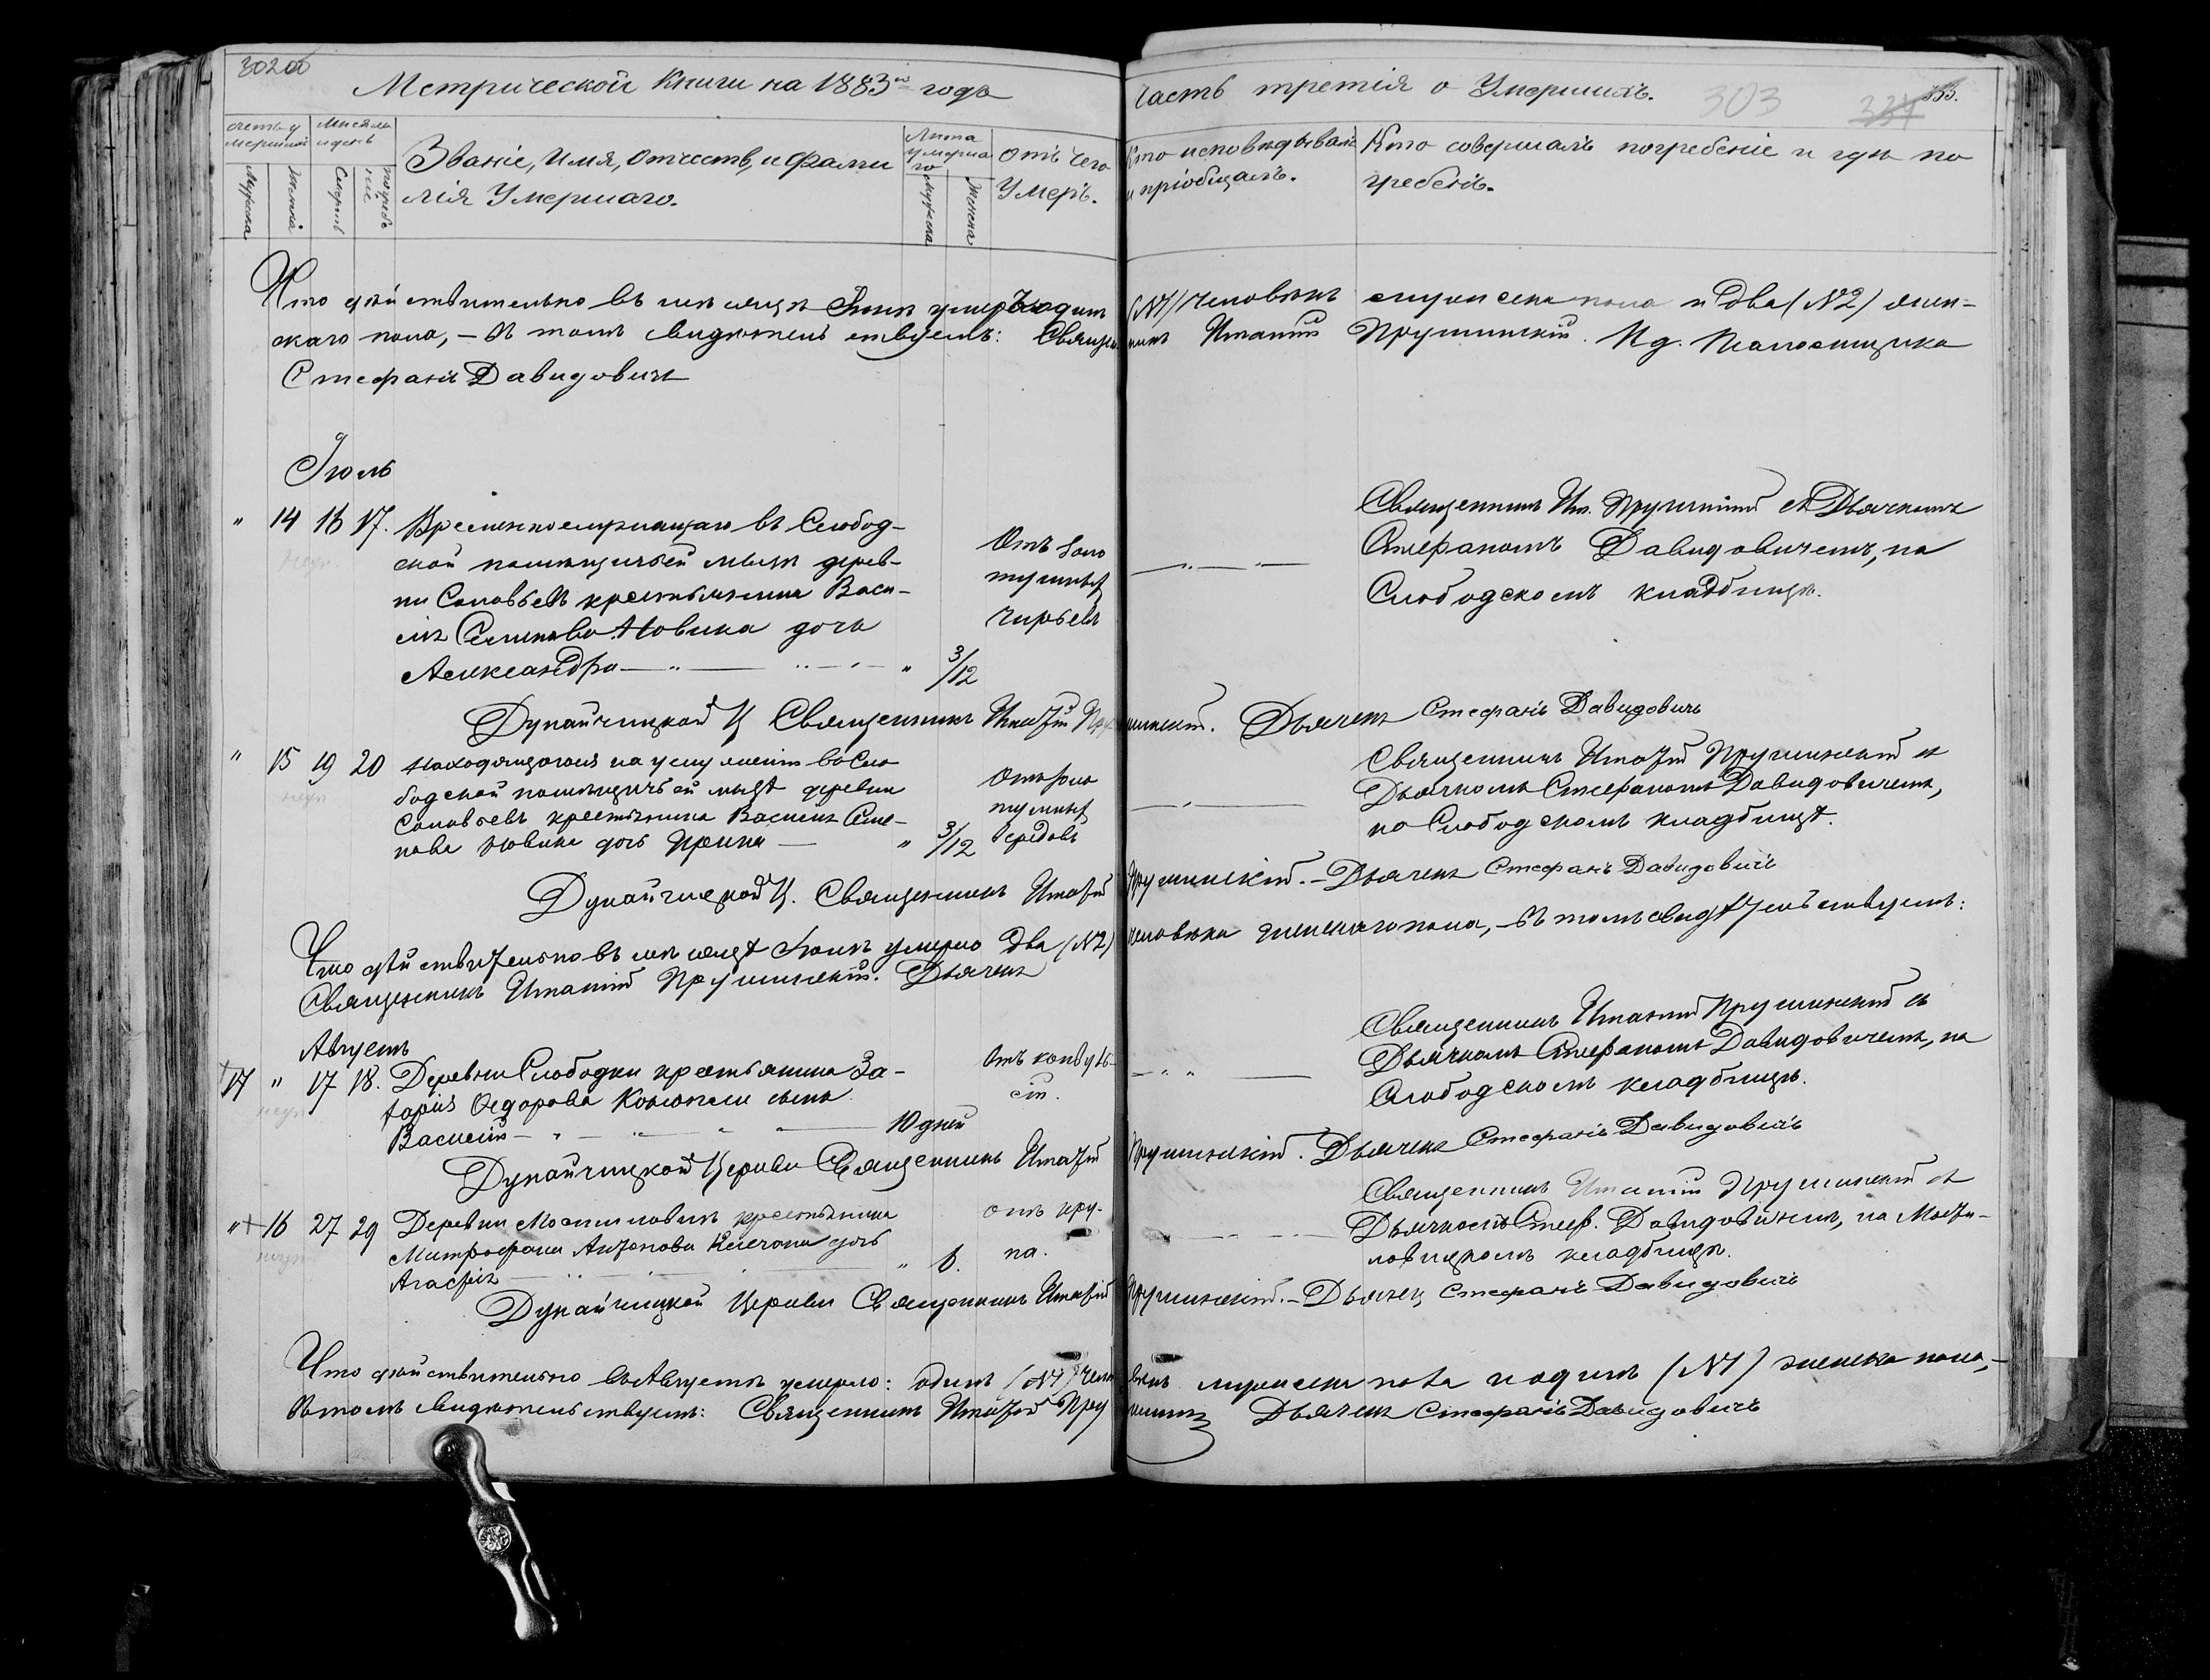 302об
Метрической Книги на 1883й годъ
Часть третія о Умершихъ.
303
334
333.
Счетъ умершихъ
Мужеска
Женска
Мѣсяцъ и день
Смерти
погребенія
Званіе, Имя, Отчество, и Фами
лія Умершаго.
Лѣта умершаго
Мужеска
Женска
Отъ чего
Умеръ.
Кто исповѣдывалъ
и пріобщалъ.
Кто совершалъ погребеніе и гдѣ по
гребенъ.
Что дѣйствительно въ мѣсяцѣ Іюнѣ умерло одинъ (№1) человѣкъ мужеска пола и два (№2) жен-
скаго пола, – въ томъ свидѣтельствуемъ: Священникъ Ипатій Прушинскій. И.д. Псаломщика
Стефанъ Давидовичъ
Іюль
" 14 16 17. Временнослужащаго въ Слобод-
ской помѣщичьей мызѣ дерев-
ни Соловьевъ крестьянина Васи-
лія Семенова Новика дочь
Александра " 3/12
Отъ золо
тушныхъ
чирьевъ
Священникъ Ип. Прушинскій съ Дьячкомъ
Стефаномъ Давидовичемъ, на
Слободскомъ кладбищѣ.
Дунайчицкой Ц. Священникъ Ипатій Прушинскій. Дьячекъ Стефанъ Давидовичъ
" 15 19 20 Находящагося на услуженіи въ Сло
бодской помѣщичьей мызѣ деревни
Соловьевъ крестьянина Василія Семе-
нова Новика дочь Ирина " 3/12
Отъ золо
тушныхъ
вередовъ
Священникъ Ипатій Прушинскій съ
Дьячкомъ Стефаномъ Давидовичемъ,
на Слободскомъ кладбищѣ.
Дунайчицкой Ц. Священникъ Ипатій Прушинскій. – Дьячекъ Стефанъ Давидовичъ
Что дѣйствительно въ мѣсяцѣ Іюлѣ умерло два (№2) человѣка женскаго пола, – въ томъ свидѣтельствуемъ:
Священникъ Ипатій Прушинскій. Дьячекъ
Августъ
17 " 17 18. Деревни Слободки крестьянина За-
харія Ѳедорова сынъ
Василій 10 дней
Отъ конвуль-
сіи.
Священникъ Ипатій Прушинскій съ
Дьячкомъ Стефаномъ Давидовичемъ, на
Слободскомъ кладбищѣ.
Дунайчицкой Церкви Священникъ Ипатій Прушинскій. Дьячекъ Стефанъ Давидовичъ
" 16 27 29 Деревни крестьянина
Митрофана Антонова дочь
Агафія " 6.
отъ кру-
па.
Священникъ Ипатій Прушинскій съ
Дьячкомъ Стеф. Давидовичемъ, на
кладбищѣ.
Дунайчицкой Церкви Священникъ Ипатій Прушинскій. – Дьячекъ Стефанъ Давидовичъ
Что дѣйствительно въ Августѣ умерло: одинъ (№1) человѣкъ мужеска пола и одинъ (№1) женска пола, –
въ томъ свидѣтельствуемъ: Священникъ Ипатій Дьячекъ Стефанъ Давидовичъ